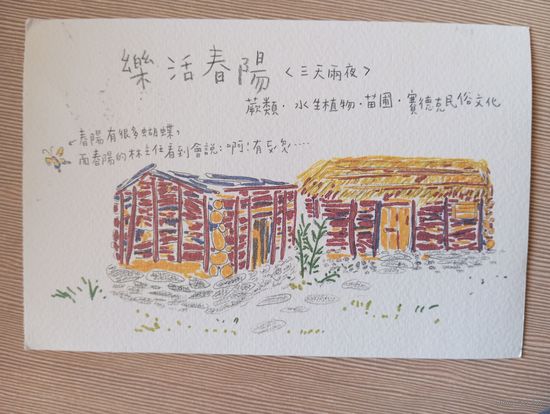 樂活春陽〈三天兩夜〉
蕨類·水生植物·苗圃·賽德克民俗文化
春陽有很多蝴蝶，
而春陽的林主任看到會說：啊！有ㄍㄨㄟ……